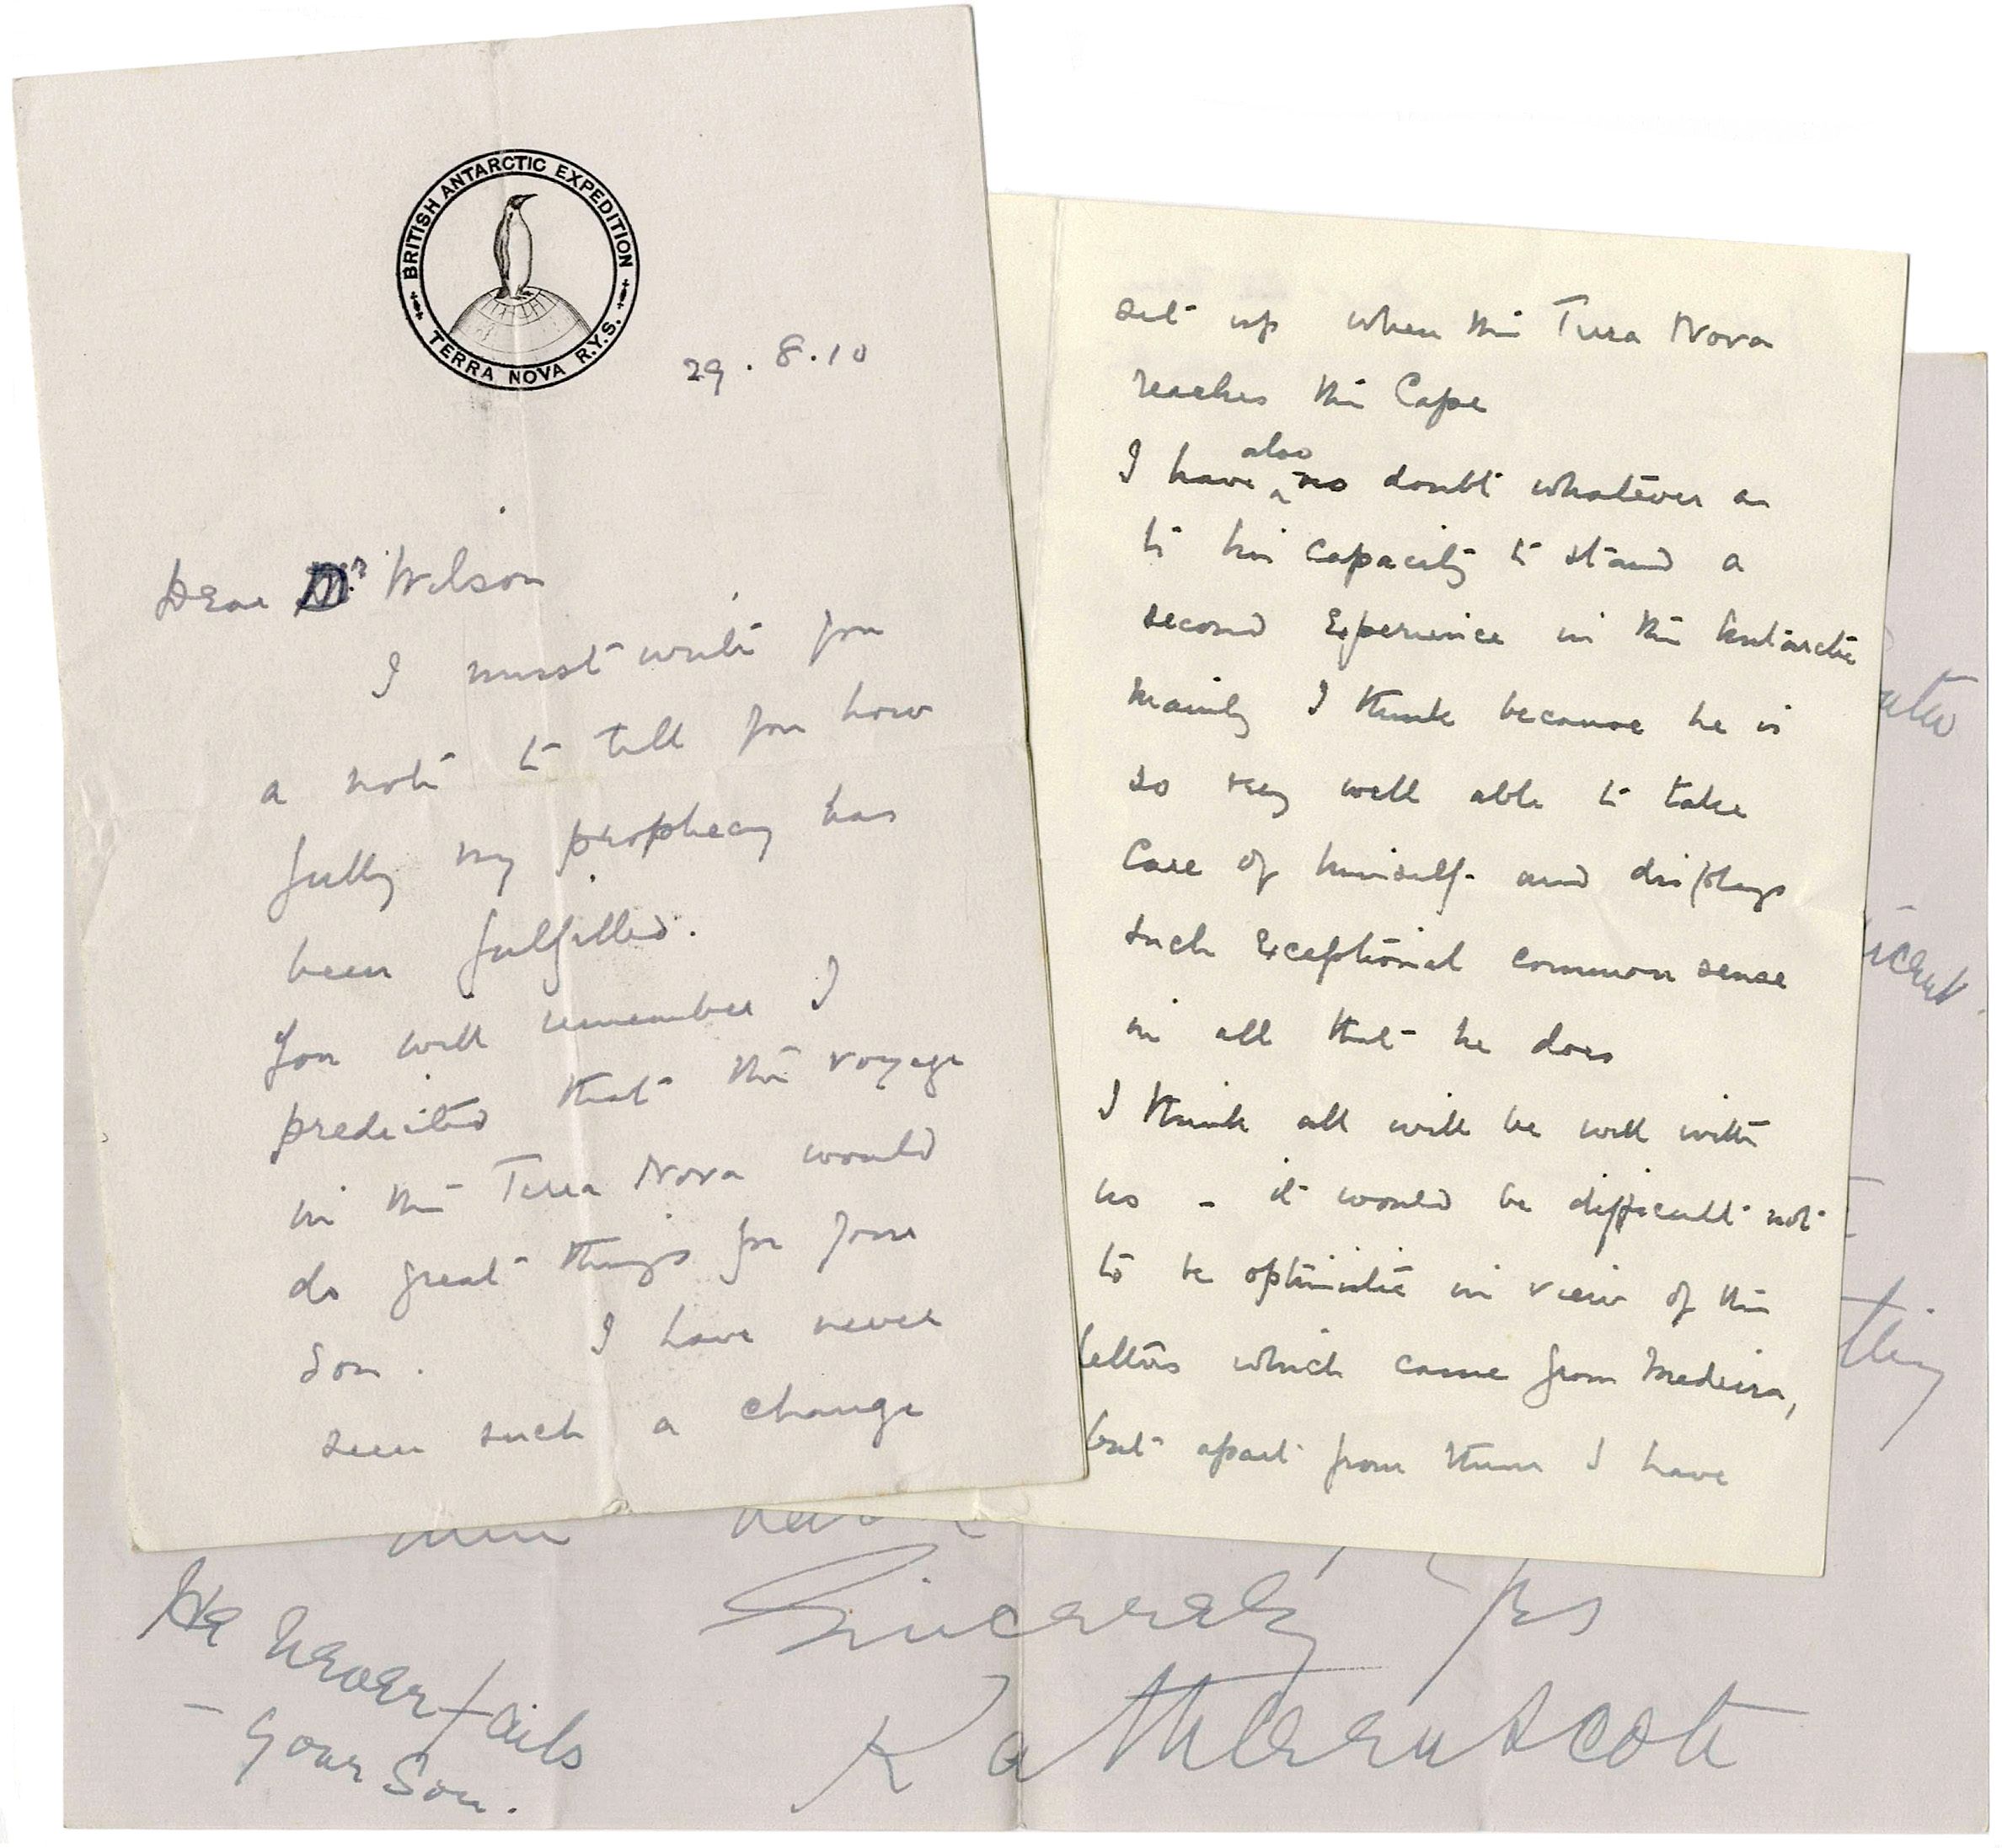 BRITISH ANTARCTIC EXPEDITION
TERRA NOVA R.Y.S.
29.8.10
Dear Dr Wilson
I must write you
a note to tell you how
fully my prophecy has
been fulfilled.
You will remember I
predicted that the voyage
in the Terra Nova would
do great things for your
son. I have never
seen such a change
set up when the Terra Nova
reaches the Cape
I have also no doubt whatever as
to his capacity to stand a
second experience in the Antarctic
mainly I think because he is
so very well able to take
care of himself and displays
such exceptional common sense
in all that he does
I think all will be well with
us - it would be difficult not
to be optimistic in view of the
letters which came from Madeira,
but apart from them I have
Sincerely yrs
Kathleen Scott
He never fails
- your Son.